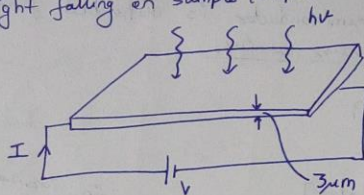 ght falling on sample.
hν
I
V
3μm